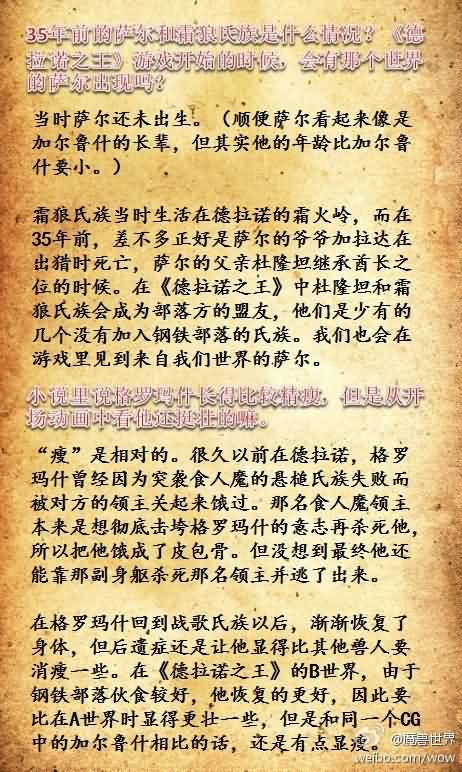 35年前的萨尔和霜狼氏族是什么情况？《德
拉诺之王》游戏开始的时候，会有那个世界
的萨尔出现吗？
当时萨尔还未出生。（顺便萨尔看起来像是
加尔鲁什的长辈，但其实他的年龄比加尔鲁
什要小。）
霜狼氏族当时生活在德拉诺的霜火岭，而在
35年前，差不多正好是萨尔的爷爷加拉达在
出猎时死亡，萨尔的父亲杜隆坦继承酋长之
位的时候。在《德拉诺之王》中杜隆坦和霜
狼氏族会成为部落方的盟友，他们是少有的
几个没有加入钢铁部落的氏族。我们也会在
游戏里见到来自我们世界的萨尔。
小说里说格罗玛什长得比较精瘦，但是从开
场动画中看他还挺壮的嘛。
“瘦”是相对的。很久以前在德拉诺，格罗
玛什曾经因为突袭食人魔的悬槌氏族失败而
被对方的领主关起来饿过。那名食人魔领主
本来是想彻底击垮格罗玛什的意志再杀死他，
所以把他饿成了皮包骨。但没想到最终他还
能靠那副身躯杀死那名领主并逃了出来。
在格罗玛什回到战歌氏族以后，渐渐恢复了
身体，但后遗症还是让他显得比其他兽人要
消瘦一些。在《德拉诺之王》的B世界，由于
钢铁部落伙食较好，他恢复的更好，因此要
比在A世界时显得更壮一些，但是和同一个CG
中的加尔鲁什相比的话，还是有点显瘦。
@魔兽世界
weibo.com/wow